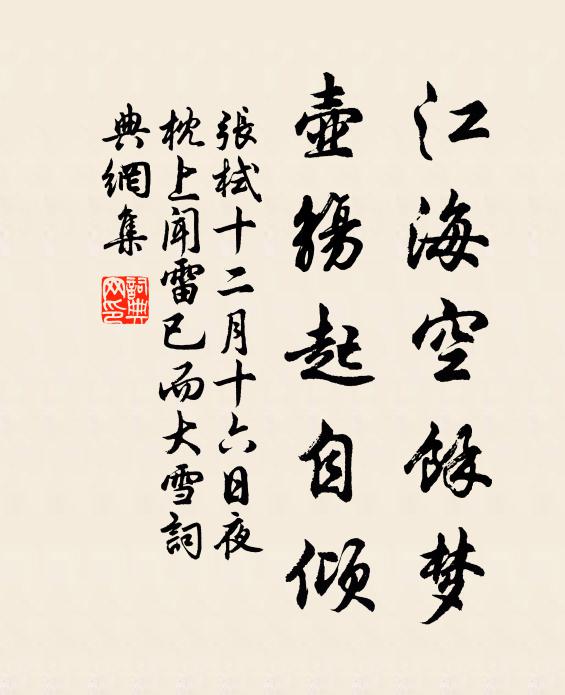 江海空餘梦
壺觴起自倾
張栻十二月十六日夜
枕上闻雷已而大雪詞
典網集
詞典
网印